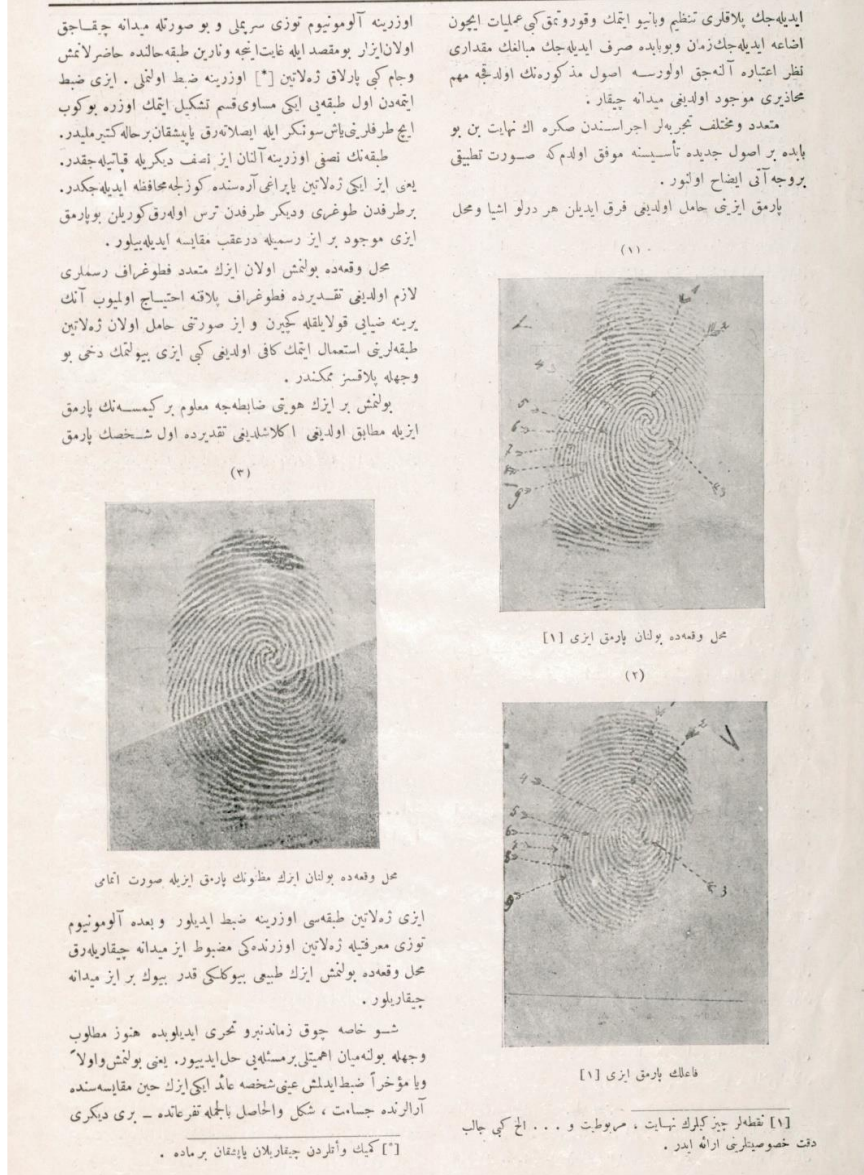 ایدیله‌جك پلاقلری تنظیم وبانیو ایتمك وقوروتمق كبی عملیات ایچون
اضاعه ایدیله‌جك زمان وبوبابده صرف ایدیله‌جك مبالغك مقداری
نظر اعتباره آلنه‌جق اولورسه اصول مذكوره‌نك اولدقجه مهم
محاذیری موجود اولدیغی میدانه چیقار .
متعدد ومختلف تجربه‌لر اجراسندن صكره اك نهایت بن بو
بابده بر اصول جدیده تأسیسنه موفق اولدم‌كه صورت تطبیقی
بروجه آتی ایضاح اولنور .
پارمق ایزینی حامل اولدیغی فرق ایدیلن هر درلو اشیا ومحل
(۱)
1
2
3
4
5
6
7
8
9
محل وقعه‌ده بولنان پارمق ایزی [۱]
(۲)
3
4
5
6
فاعلك پارمق ایزی [۱]
[۱] نقطه‌لر چیزكیلرك نهایت ، مربوطیت و . . . الخ كبی جالب
دقت خصوصیتلرینی ارائه ایدر .
اوزرینه آلومونیوم توزی سریملی و بو صورتله میدانه چیقاجق
اولان‌ایزلر بومقصد ایله غایت‌اینجه ونارین طبقه‌حالنده حاضرلانمش
وجام كبی پارلاق ژه‌لاتین [*] اوزرینه ضبط اولنملی . ایزی ضبط
ایتمه‌دن اول طبقه‌یی ایكی مساوی‌قسم تشكیل ایتمك اوزره بوكوب
ایچ طرفلرینی‌یاش‌سونكر ایله ایصلانه‌رق یاپیشقان‌برحاله‌كتیرملیدر.
طبقه‌نك نصفی اوزرینه‌آلنان ایز نصف دیكریله قپاتیله‌جقدر.
یعنی ایز ایكی ژه‌لاتین یاپراغی آره‌سنده كوزلجه‌محافظه ایدیله‌جكدر.
برطرفدن طوغری ودیكر طرفدن ترس اوله‌رق‌كوریلن بوپارمق
ایزی موجود بر ایز رسمیله درعقب مقایسه ایدیله‌بیلور .
محل وقعه‌ده بولنمش اولان ایزك متعدد فطوغراف رسملری
لازم اولدیغی تقدیرده فطوغراف پلاقنه احتیاج اولمیوب آنك
یرینه ضیایی قولایلقله كچیرن و ایز صورتنی حامل اولان ژه‌لاتین
طبقه‌لرینی استعمال ایتمك كافی اولدیغی كبی ایزی بیولتمك دخی بو
وجهله پلاقسز ممكندر .
بولنمش بر ایزك هویتی ضابطه‌جه معلوم بر كیمسه‌نك پارمق
ایزیله مطابق اولدیغی اكلاشلدیغی تقدیرده اول شخصك پارمق
(۳)
محل وقعه‌ده بولنان ایزك مظنونك پارمق ایزیله صورت اتمامی
ایزی ژه‌لاتین طبقه‌سی اوزرینه ضبط ایدیلور وبعده آلومونیوم
توزی معرفتیله ژه‌لاتین اوزرنده‌كی مضبوط ایز میدانه چیقاریله‌رق
محل وقعه‌ده بولنمش ایزك طبیعی بیوكلكی قدر بیوك بر ایز میدانه
چیقاریلور .
شو خاصه چوق زماندنبرو تحری ایدیلوبده هنوز مطلوب
وجهله بولنه‌میان اهمیتلی‌برمسئله‌یی حل‌ایدییور. یعنی بولنمش‌واولاً
ویا مؤخراً ضبط‌ایدلمش عینی‌شخصه عائد ایكی‌ایزك حین مقایسه‌سنده
آرالرنده جسامت ، شكل والحاصل بالجمله تفرعاتده ـ بری دیكری
[*] كمیك وأتلردن چیقاریلان یاپشقان بر ماده .